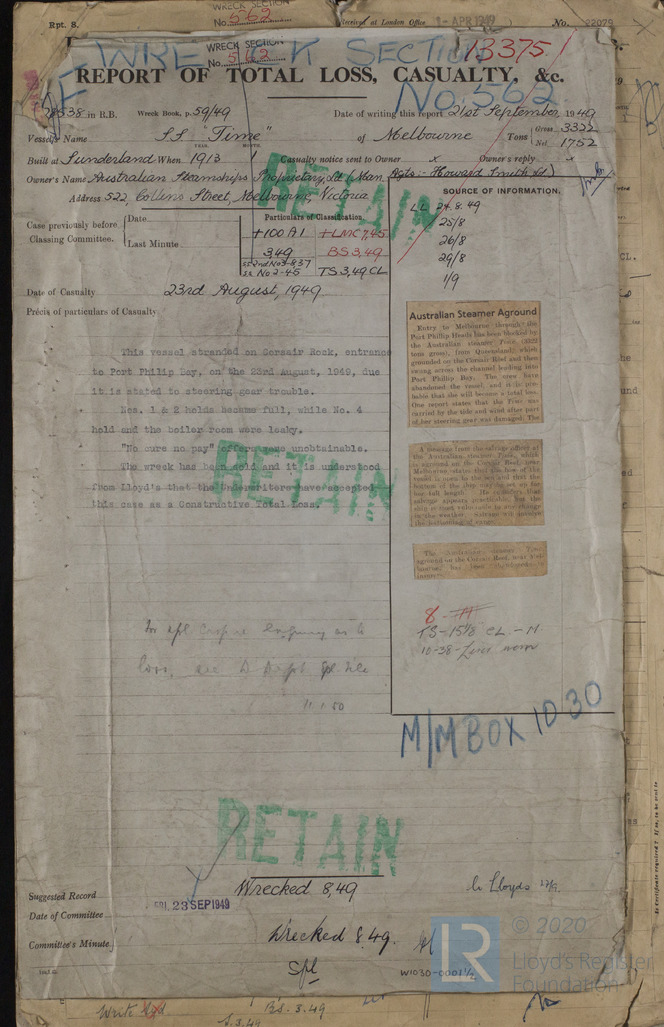 Rpt. 8.
WRECK SECTION
No. 562
Received at London Office
1-APR 1949
No. 22079
WRECK SECTION
No. 562
WRECK SECTION
No. 562
13375
REPORT OF TOTAL LOSS, CASUALTY, &c.
78538 in R.B.
Wreck Book, p. 59/49
Date of writing this report 21st September 1949
Vessel's Name SS "Time" of Melbourne Tons Gross 3322
Net 1752
YEAR. MONTH.
Built at Sunderland When 1913 Casualty notice sent to Owner x Owner's reply x
Owner's Name Australian Steamships Proprietary Ld (Man Agts:- Howard Smith Ld)
Address 522, Collins Street, Melbourne, Victoria
RETAIN
SOURCE OF INFORMATION.
LL 24.8.49
25/8
26/8
29/8
1/9
Case previously before Classing Committee.
Date
Last Minute
Particulars of Classification
+100A1 +LMC 7,45
3,49 BS 3,49
SS 2nd No 3-8.37
SS No 2-45 TS 3,49 CL
Date of Casualty 23rd August, 1949
Précis of particulars of Casualty
This vessel stranded on Corsair Rock, entrance
to Port Philip Bay, on the 23rd August, 1949, due
it is stated to steering gear trouble.
Nos. 1 & 2 holds became full, while No. 4
hold and the boiler room were leaky.
"No cure no pay" offer was unobtainable.
The wreck has been sold and it is understood
from Lloyd's that the Underwriters have accepted
this case as a Constructive Total Loss.
RETAIN
Australian Steamer Aground
Entry to Melbourne through the
Port Phillip Heads has been blocked by
the Australian steamer Time (3322
tons gross), from Queensland, which
grounded on the Corsair Reef and then
swung across the channel leading into
Port Phillip Bay. The crew have
abandoned the vessel, and it is pro-
bable that she will become a total loss.
One report states that the Time was
carried by the tide and wind after part
of her steering gear was damaged. The
A message from the salvage officer at
the Australian steamer Time, which
is aground on the Corsair Reef, near
Melbourne, states that the
8
TS-15/8 CL-M
10-38-Liner worn
11.1.50
M/M BOX 1030
RETAIN
Suggested Record Wrecked 8,49
Lloyds
Date of Committee FRI. 23 SEP 1949
Committee's Minute Wrecked 8.49.
Spl
W1030-0001 1/2
LR
© 2020
Lloyd's Register
Foundation
BS. 3.49
S.3.49